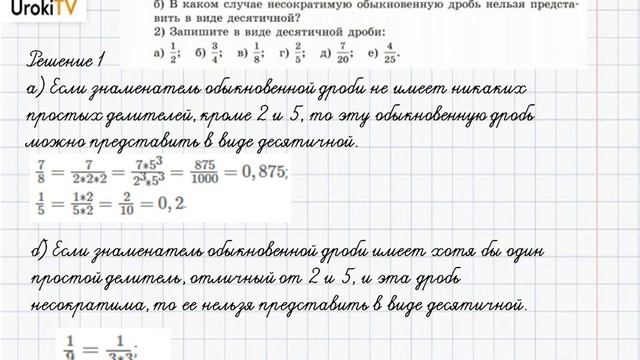 UrokiTV
б) В каком случае несократимую обыкновенную дробь нельзя предста-
вить в виде десятичной?
2) Запишите в виде десятичной дроби:
а) 1/2; б) 3/4; в) 1/8; г) 2/5; д) 7/20; е) 4/25.
Решение 1
а) Если знаменатель обыкновенной дроби не имеет никаких
простых делителей, кроме 2 и 5, то эту обыкновенную дробь
можно представить в виде десятичной.
7/8 = 7/(2*2*2) = (7*5³)/(2³*5³) = 875/1000 = 0,875;
1/5 = (1*2)/(5*2) = 2/10 = 0,2.
б) Если знаменатель обыкновенной дроби имеет хотя бы один
простой делитель, отличный от 2 и 5, и эта дробь
несократима, то ее нельзя представить в виде десятичной.
1/9 = 1/(3*3);